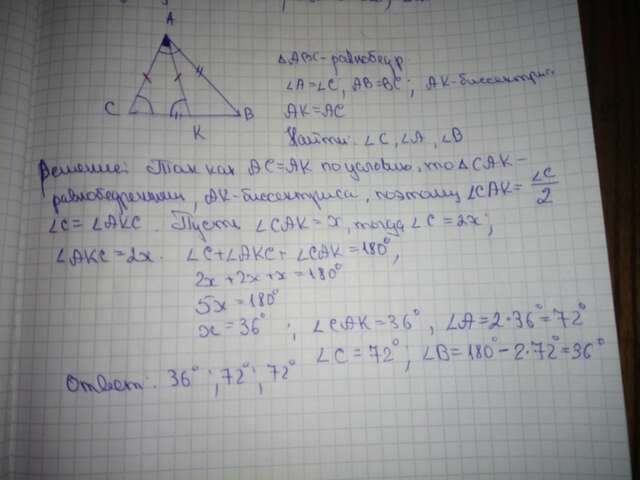 A
C
B
K
△ABC - равнобедр.
∠A=∠C, AB=BC; AK-биссектриса
AK=AC
Найти: ∠C, ∠A, ∠B
Решение: Так как AC=AK по условию, то △CAK-
равнобедренный, AK-биссектриса, поэтому ∠CAK= ∠C/2
∠C=∠AKC. Пусть ∠CAK=x, тогда ∠C=2x;
∠AKC=2x. ∠C+∠AKC+∠CAK=180°,
2x+2x+x=180°
5x=180°
x=36°; ∠CAK=36°, ∠A=2·36°=72°
∠C=72°; ∠B=180°-2·72°=36°
Ответ: 36°; 72°; 72°